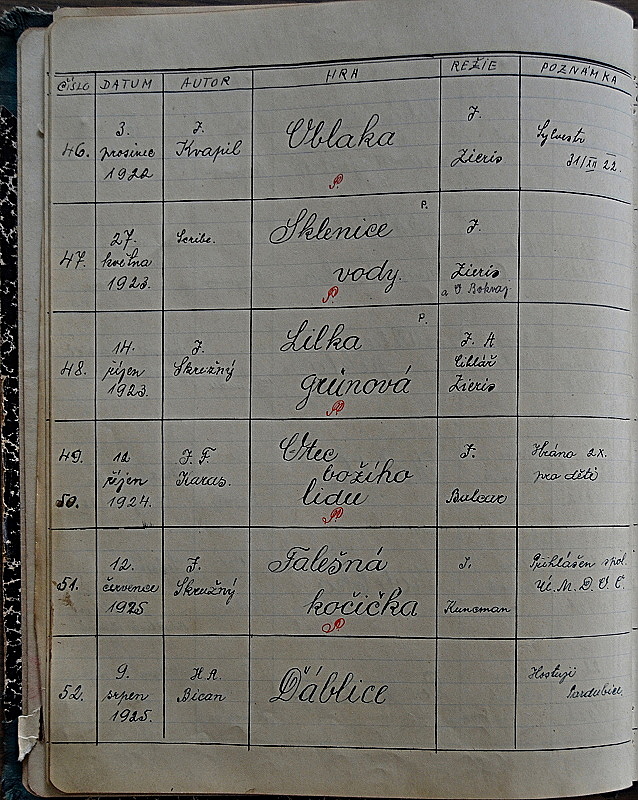 ČÍSLO DATUM AUTOR HRA REŽIE POZNÁMKA
46. 3. prosinec 1922 J. Kvapil Oblaka J. Zieris Sylvestr 31/XII 22.
P.
47. 27. května 1923. Scribe. Sklenice vody. P. J. Zieris
P.
48. 14. říjen 1923. J. Skružný Lilka grünová P. J. A Cihlář Zieris
P.
49. 50. 12 říjen 1924. J. F. Karas. Otec božího lidu J. Bulcar Hráno 2x. pro děti
P.
51. 12. července 1925 J. Skružný Falešná kočička J. Kuncman Přihlášen spol. Ú. M. D. O. Č.
P.
52. 9. srpen 1925. H A. Bican Ďáblice Hostují Pardubice.